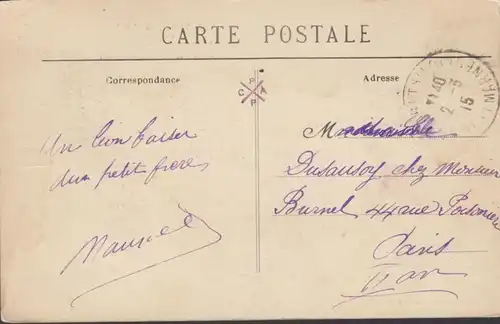 CARTE POSTALE
Correspondance
Adresse
C P A P
17 40
2 - 5
15
Un bon baiser
d'un petit frère
Maurice
Mademoiselle
Dusausoy chez Monsieur
Burnel 44 rue Poissonnière
Paris